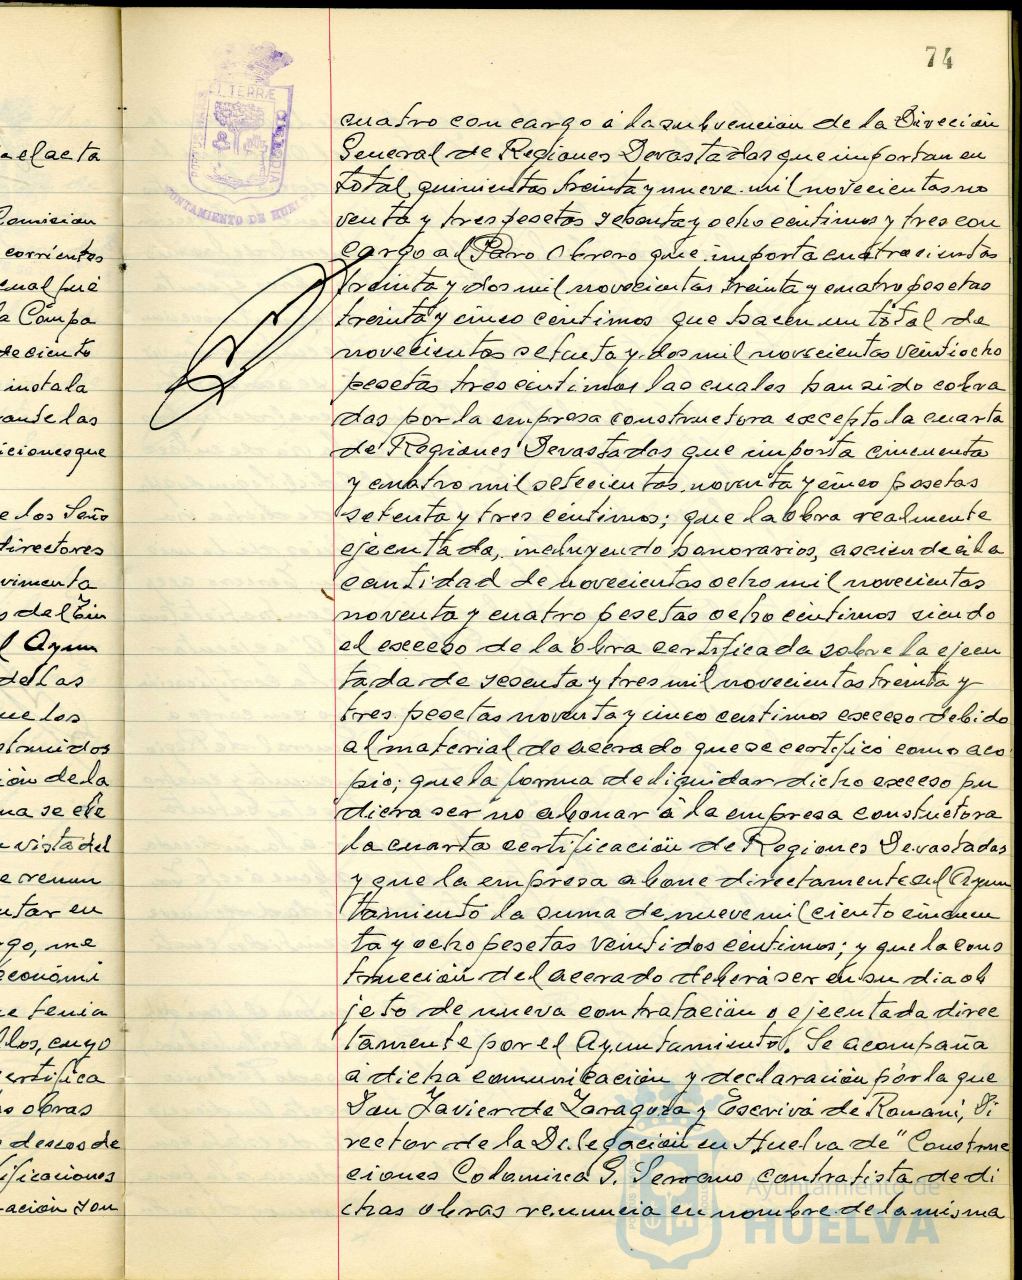 74
TERRÆ
AYUNTAMIENTO DE HUELVA
cuatro con cargo á la subvención de la Dirección
General de Regiones Devastadas que importan en
total quinientas treinta y nueve mil novecientas no
venta y tres pesetas sesenta y ocho centimos y tres con
cargo al Paro Obrero que importa cuatrocientas
treinta y dos mil novecientas treinta y cuatro pesetas
treinta y cinco centimos que hacen un total de
novecientas setenta y dos mil novecientas veintiocho
pesetas tres centimos las cuales han sido cobra
das por la empresa constructora excepto la cuarta
de Regiones Devastadas que importa cincuenta
y cuatro mil setecientas noventa y cinco pesetas
setenta y tres centimos; que la obra realmente
ejecutada, incluyendo honorarios, asciende á la
cantidad de novecientas ocho mil novecientas
noventa y cuatro pesetas ocho centimos siendo
el exceso de la obra certificada sobre la ejecu
tada de sesenta y tres mil novecientas treinta y
tres pesetas noventa y cinco centimos exceso debido
al material de acerado que se certificó como aco
pio; que la forma de liquidar dicho exceso pu
diera ser no abonar á la empresa constructora
la cuarta certificación de Regiones Devastadas
y que la empresa abone directamente al Ayun
tamiento la suma de nueve mil ciento cincuen
ta y ocho pesetas veintidos centimos; y que la cons
trucción del acerado deberá ser en su dia ob
jeto de nueva contratación o ejecutada direc
tamente por el Ayuntamiento. Se acompaña
á dicha comunicación y declaración por la que
Don Javier de Zaragoza y Escrivá de Romaní, Di
rector de la Delegación en Huelva de "Construc
ciones Colomina G. Serrano contratista de di
chas obras renuncia en nombre de la misma
a el acta
Comision
corrientes
cual fué
a Compa
de ciento
instala
rante las
iciones que
e los Seño
directores
vimenta
l Ayun
de las
ue los
struidos
ión de la
ma se ele
vista del
e renun
ntar en
go, me
económi
ue tenia
llos, cuyo
ertifica
s obras
deseos de
ificaciones
ración son
Ayuntamiento de
HUELVA